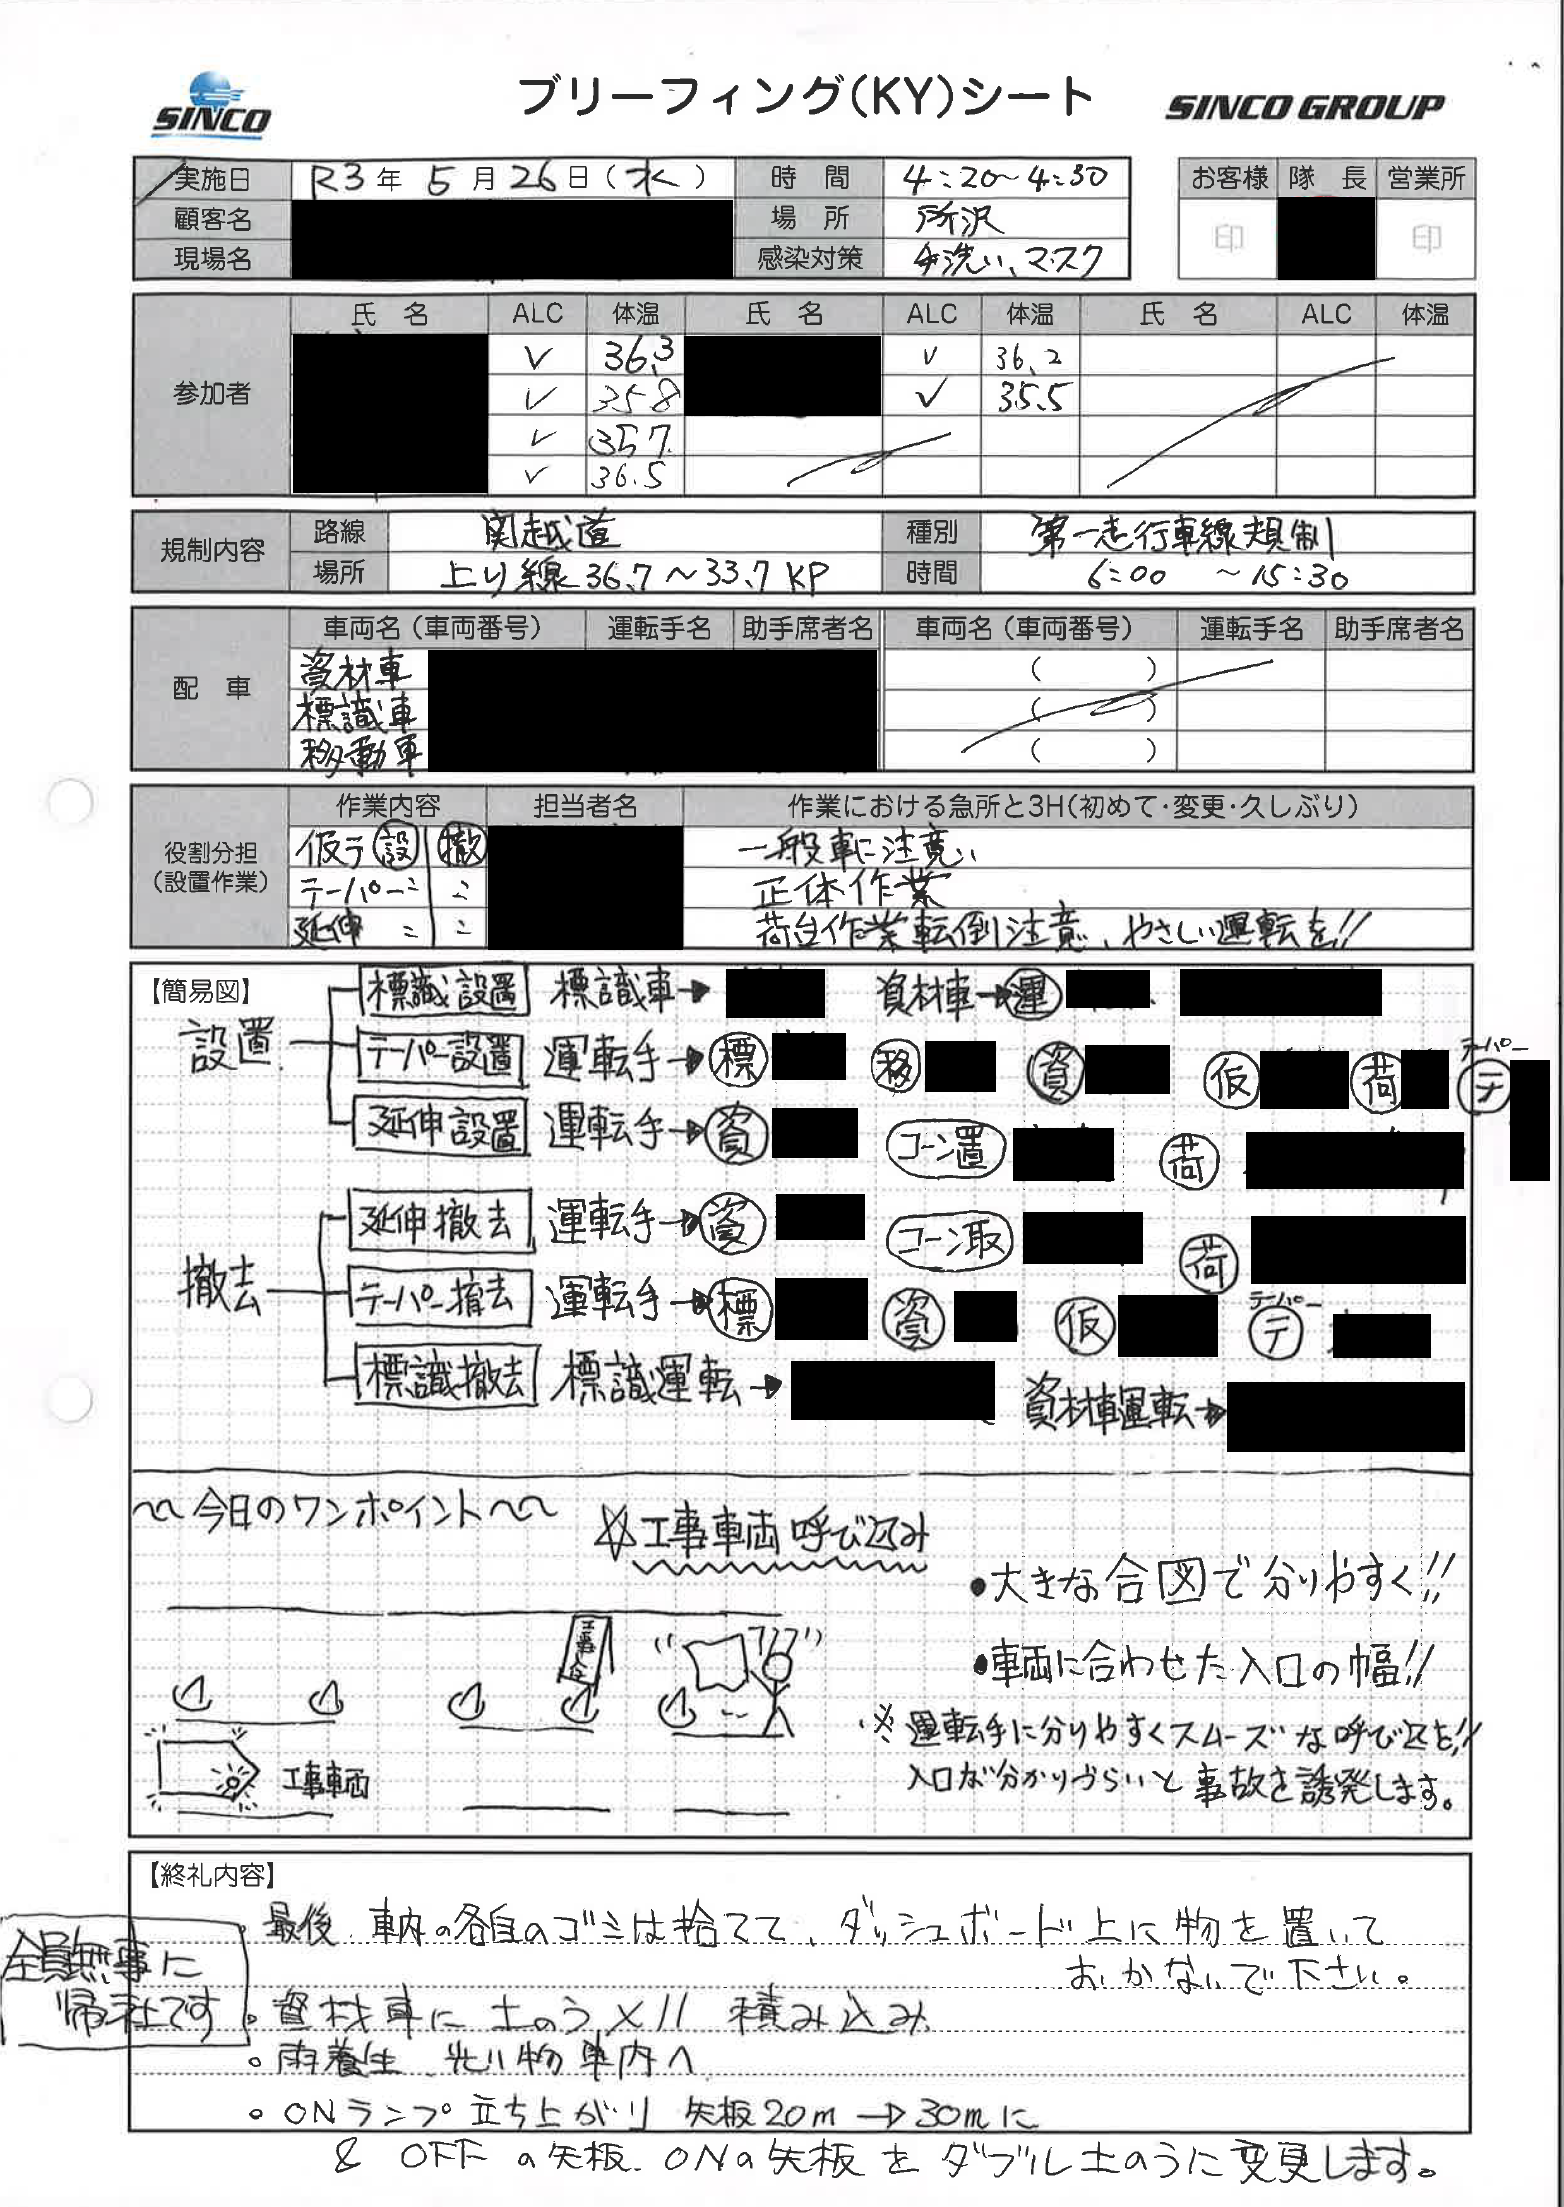 SINCO
ブリーフィング(KY)シート
SINCO GROUP
実施日 R3年 5月26日(水) 時間 4:20~4:30
顧客名 場所 所沢
現場名 感染対策 手洗い、マスク
お客様 隊長 営業所
印 印
参加者
氏名 ALC 体温 氏名 ALC 体温 氏名 ALC 体温
✓ 36.3 ✓ 36.2
✓ 35.8 ✓ 35.5
✓ 35.7
✓ 36.5
規制内容
路線 関越道 種別 第一走行車線規制
場所 上り線36.7~33.7KP 時間 6:00 ~15:30
配車
車両名(車両番号) 運転手名 助手席者名 車両名(車両番号) 運転手名 助手席者名
資材車 ( )
標識車 ( )
移動車 ( )
役割分担
(設置作業)
作業内容 担当者名 作業における急所と3H(初めて・変更・久しぶり)
仮テ 設 撤 一般車に注意
テーパー 〃 〃 正体作業
延伸 〃 〃 荷台作業転倒注意、やさしい運転を!!
【簡易図】
設置
標識設置 標識車→ 資材車→運
テーパー設置 運転手→標 移 資 仮 荷 テーパー テ
延伸設置 運転手→資 コーン置 荷
撤去
延伸撤去 運転手→資 コーン取 荷
テーパー撤去 運転手→標 資 仮 テーパー テ
標識撤去 標識運転→ 資材車運転→
~~今日のワンポイント~~
☆工事車両呼び込み
●大きな合図で分りやすく!!
●車両に合わせた入口の幅!!
※運転手に分りやすくスムーズな呼び込を!!
入口が分かりづらいと事故を誘発します。
工事車両
【終礼内容】
全員無事に
帰社です
・最後、車内の各自のゴミは捨てて、ダッシュボード上に物を置いて
おかないで下さい。
。資材車に土のう×11 積み込み
。雨養生、光り物車内へ
。ONランプ立ち上がり 矢板20m→30mに
& OFFの矢板、ONの矢板をダブル土のうに変更します。